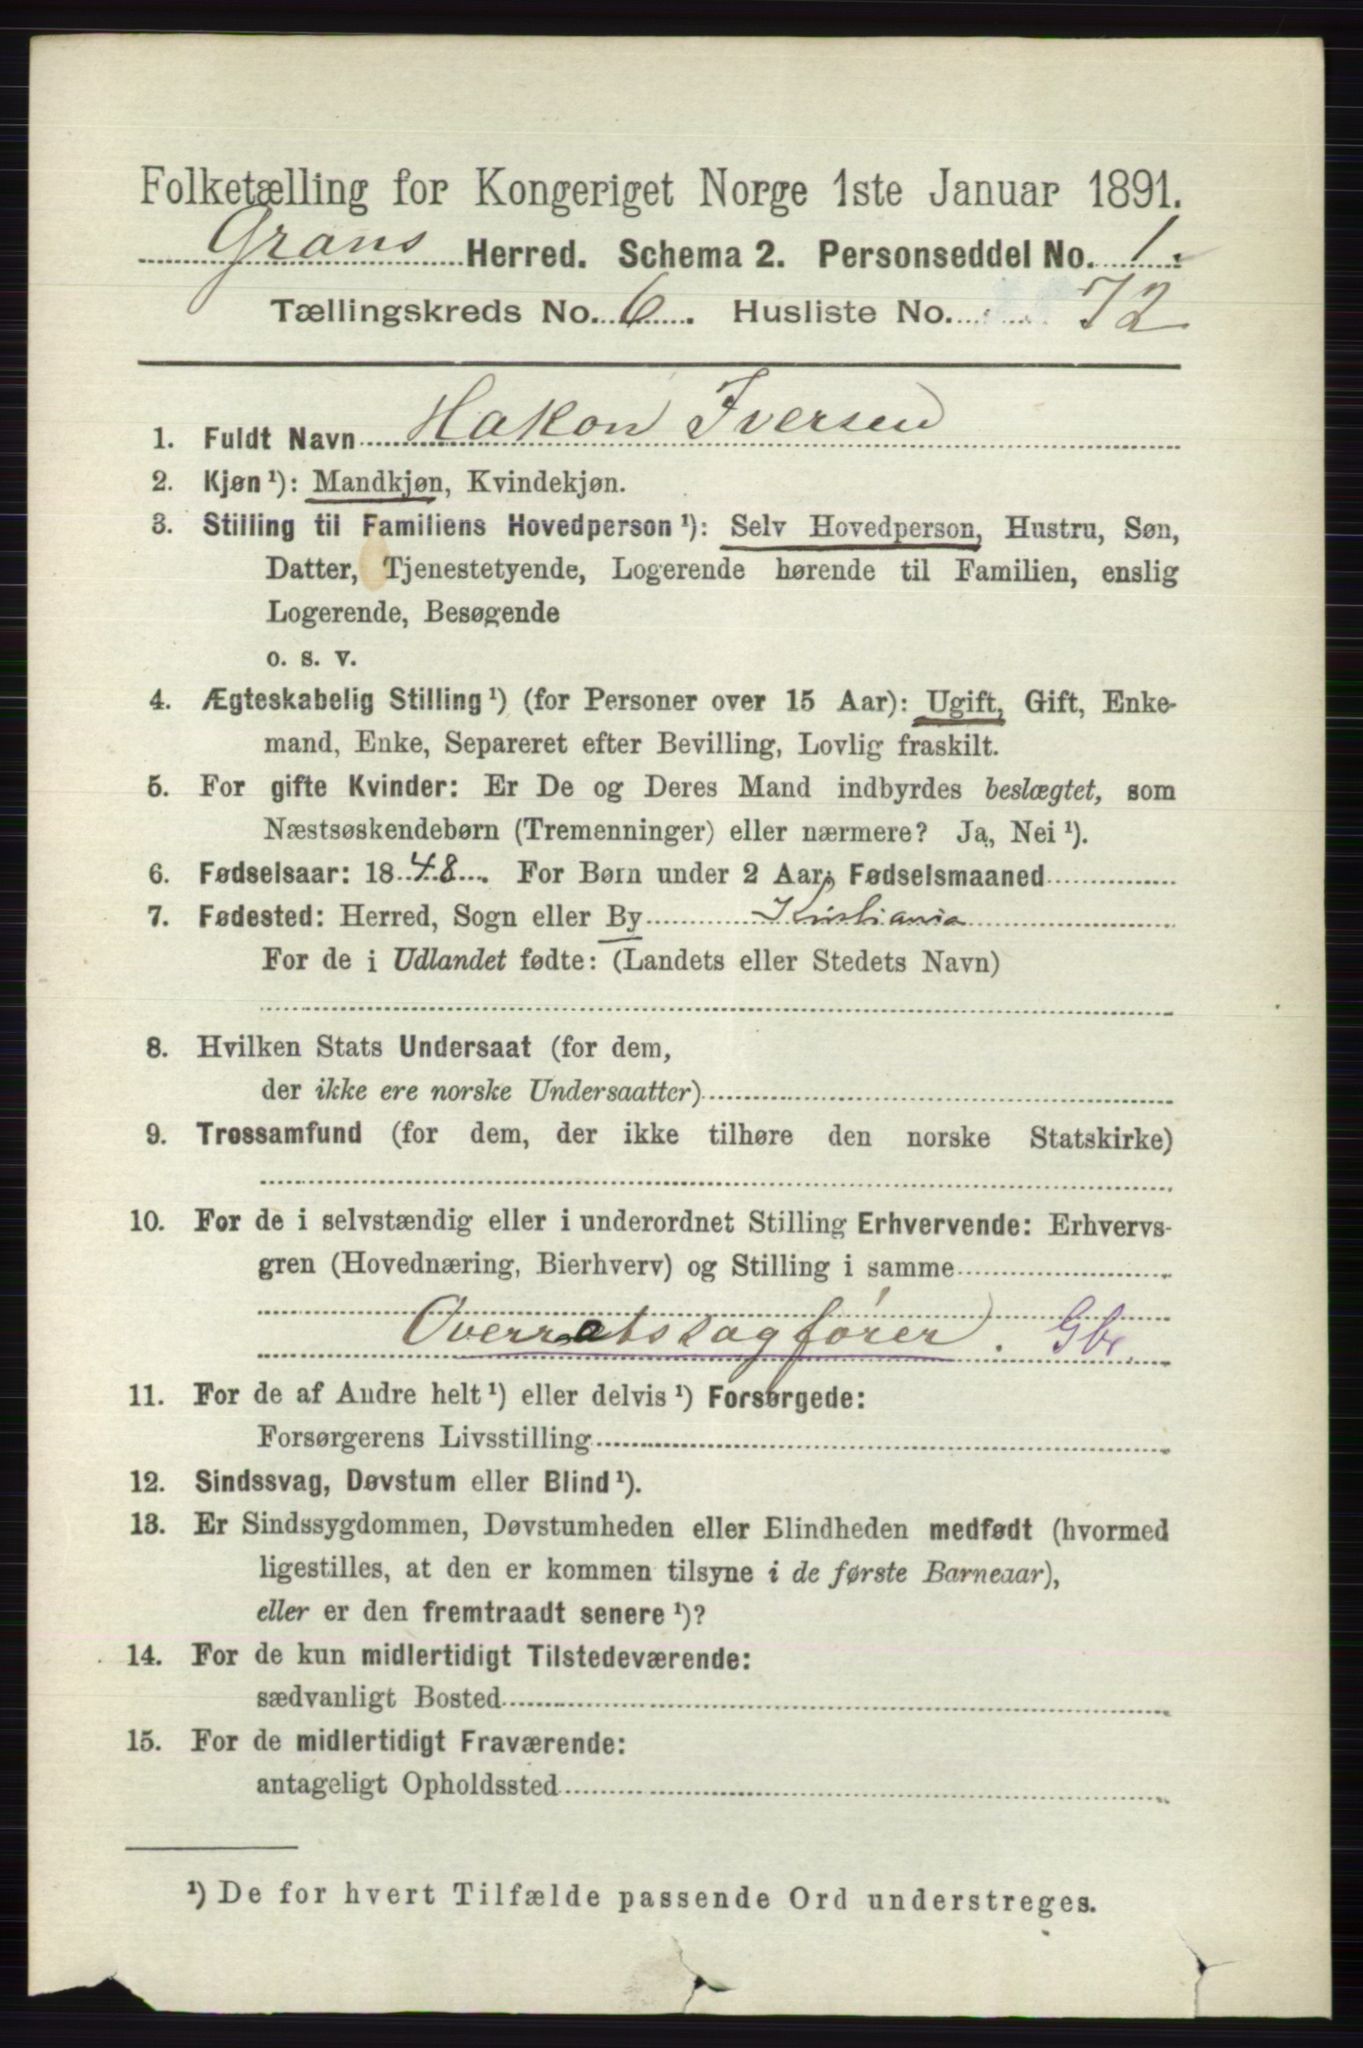 Folketælling for Kongeriget Norge 1ste Januar 1891.
Grans Herred. Schema 2. Personseddel No. 1.
Tællingskreds No. 6. Husliste No. 72
1. Fuldt Navn Hakon Iversen
2. Kjøn ¹): Mandkjøn, Kvindekjøn.
3. Stilling til Familiens Hovedperson ¹): Selv Hovedperson, Hustru, Søn,
Datter, Tjenestetyende, Logerende hørende til Familien, enslig
Logerende, Besøgende
o. s. v.
4. Ægteskabelig Stilling ¹) (for Personer over 15 Aar): Ugift, Gift, Enke-
mand, Enke, Separeret efter Bevilling, Lovlig fraskilt.
5. For gifte Kvinder: Er De og Deres Mand indbyrdes beslægtet, som
Næstsøskendebørn (Tremenninger) eller nærmere? Ja, Nei ¹).
6. Fødselsaar: 1848. For Børn under 2 Aar: Fødselsmaaned
7. Fødested: Herred, Sogn eller By Kristiania
For de i Udlandet fødte: (Landets eller Stedets Navn)
8. Hvilken Stats Undersaat (for dem,
der ikke ere norske Undersaatter)
9. Trossamfund (for dem, der ikke tilhøre den norske Statskirke)
10. For de i selvstændig eller i underordnet Stilling Erhvervende: Erhvervs-
gren (Hovednæring, Bierhverv) og Stilling i samme
Overratskagfører. Gbr.
11. For de af Andre helt ¹) eller delvis ¹) Forsørgede:
Forsørgerens Livsstilling
12. Sindssvag, Døvstum eller Blind ¹).
13. Er Sindssygdommen, Døvstumheden eller Blindheden medfødt (hvormed
ligestilles, at den er kommen tilsyne i de første Barneaar),
eller er den fremtraadt senere ¹)?
14. For de kun midlertidigt Tilstedeværende:
sædvanligt Bosted
15. For de midlertidigt Fraværende:
antageligt Opholdssted
¹) De for hvert Tilfælde passende Ord understreges.